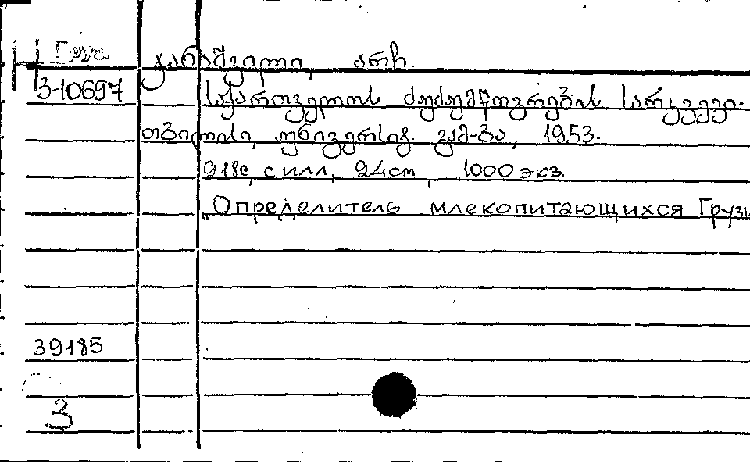 Н Груз ჯანაშვილი, არჩ.
3-10697 საქართველოს ძუძუმწოვრების სარკვევი.
თბილისი, უნივერსიტ. გამ-ბა, 1953.
218с, с илл, 24см, 1000 экз.
Определитель млекопитающихся Грузи
39185
3